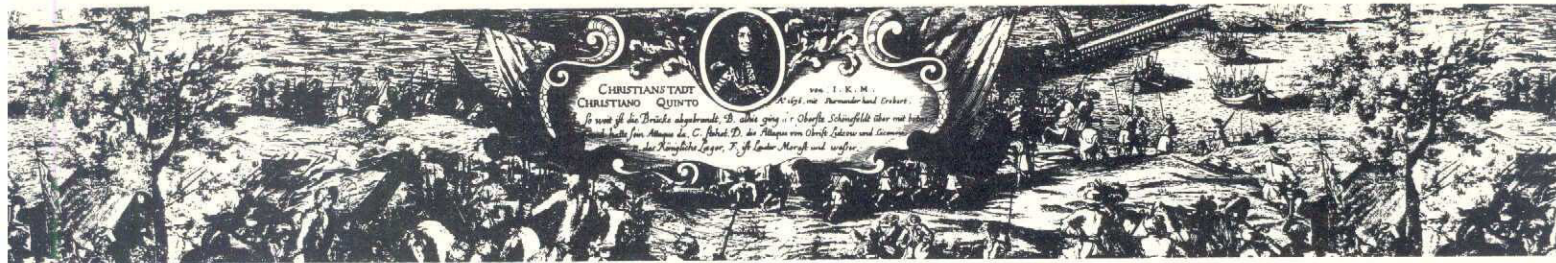 CHRISTIANSTADT von I. K. M.
CHRISTIANO QUINTO Aº 1676, mit Sturmander hand Erobert.
So weit ist die Brücke abgebrandt, B. alhie ging der Oberste Schönfeldt über mit
hatte sein Attaque da, C. stehet. D. die Attaque von Obrist Lutzow und
das Königliche Läger, F. ist Lauter Morast und wasser.